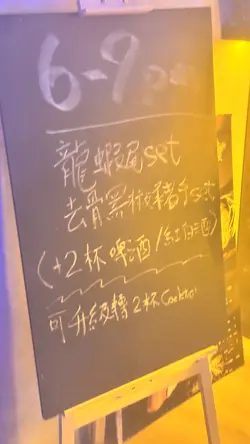 6-9pm
龍蝦尾set
去骨黑椒豬手set
(+2杯啤酒/紅白酒)
可升級轉2杯Cocktail